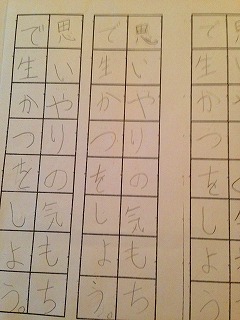 で生かつをしよう
思いやりの気もち
で生かつをしよう。
思いやりの気もち
で生かつをしよう。